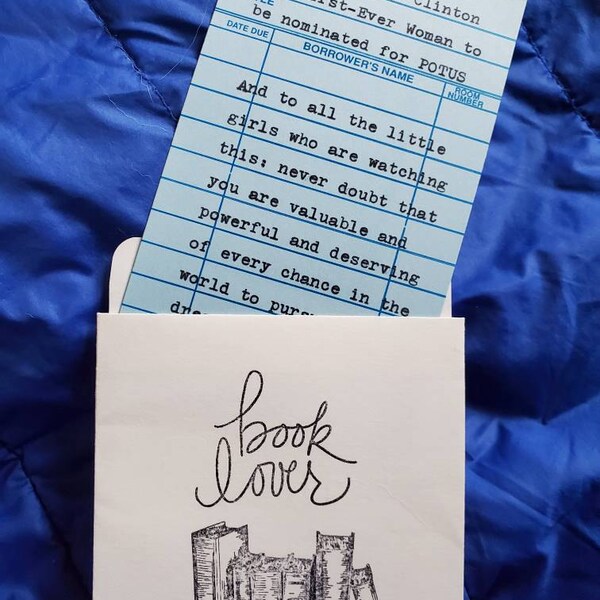 Clinton
-Ever Woman to
be nominated for POTUS
DATE DUE
BORROWER'S NAME
ROOM NUMBER
And to all the little
girls who are watching
this: never doubt that
you are valuable and
powerful and deserving
of every chance in the
world to
book
lover